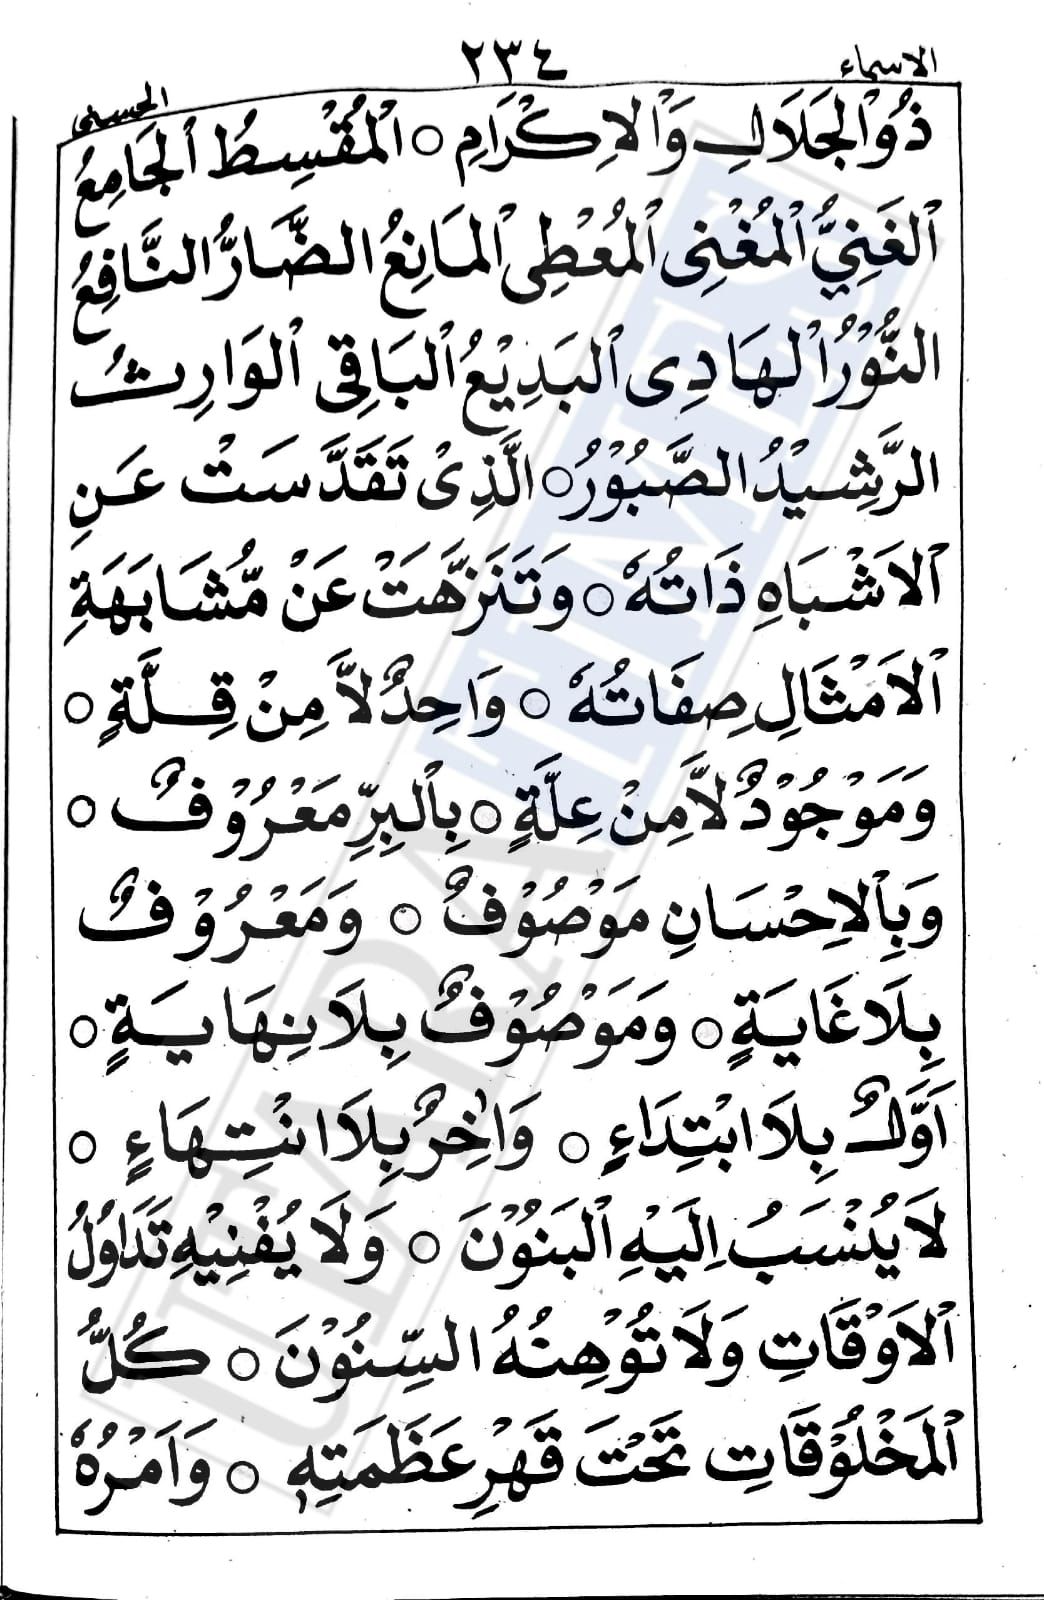 الاسماء ٢٣٤ الحسنى
ذُوالْجَلَالِ وَالْاِكْرَامِ ○ اَلْمُقْسِطُ الْجَامِعُ
اَلْغَنِيُّ الْمُغْنِى الْمُعْطِى الْمَانِعُ الضَّارُّ النَّافِعُ
النُّوْرُ الْهَادِى الْبَدِيْعُ الْبَاقِى الْوَارِثُ
الرَّشِيْدُ الصَّبُوْرُ ○ الَّذِىْ تَقَدَّسَتْ عَنِ
الْاَشْبَاهِ ذَاتُهٗ ○ وَتَنَزَّهَتْ عَنْ مُّشَابَهَةِ
الْاَمْثَالِ صِفَاتُهٗ ○ وَاحِدٌ لَّا مِنْ قِلَّةٍ ○
وَمَوْجُوْدٌ لَّا مِنْ عِلَّةٍ ○ بِالْبِرِّ مَعْرُوْفٌ ○
وَبِالْاِحْسَانِ مَوْصُوْفٌ ○ وَمَعْرُوْفٌ
بِلَا غَايَةٍ ○ وَمَوْصُوْفٌ بِلَا نِهَايَةٍ ○
اَوَّلٌ بِلَا ابْتِدَاءٍ ○ وَاٰخِرٌ بِلَا انْتِهَاءٍ ○
لَا يُنْسَبُ اِلَيْهِ الْبَنُوْنَ ○ وَلَا يُفْنِيْهِ تَدَاوُلُ
الْاَوْقَاتِ وَلَا تُوْهِنُهُ السِّنُوْنَ ○ كُلُّ
الْمَخْلُوْقَاتِ تَحْتَ قَهْرِ عَظَمَتِهٖ ○ وَاَمْرُهٗ